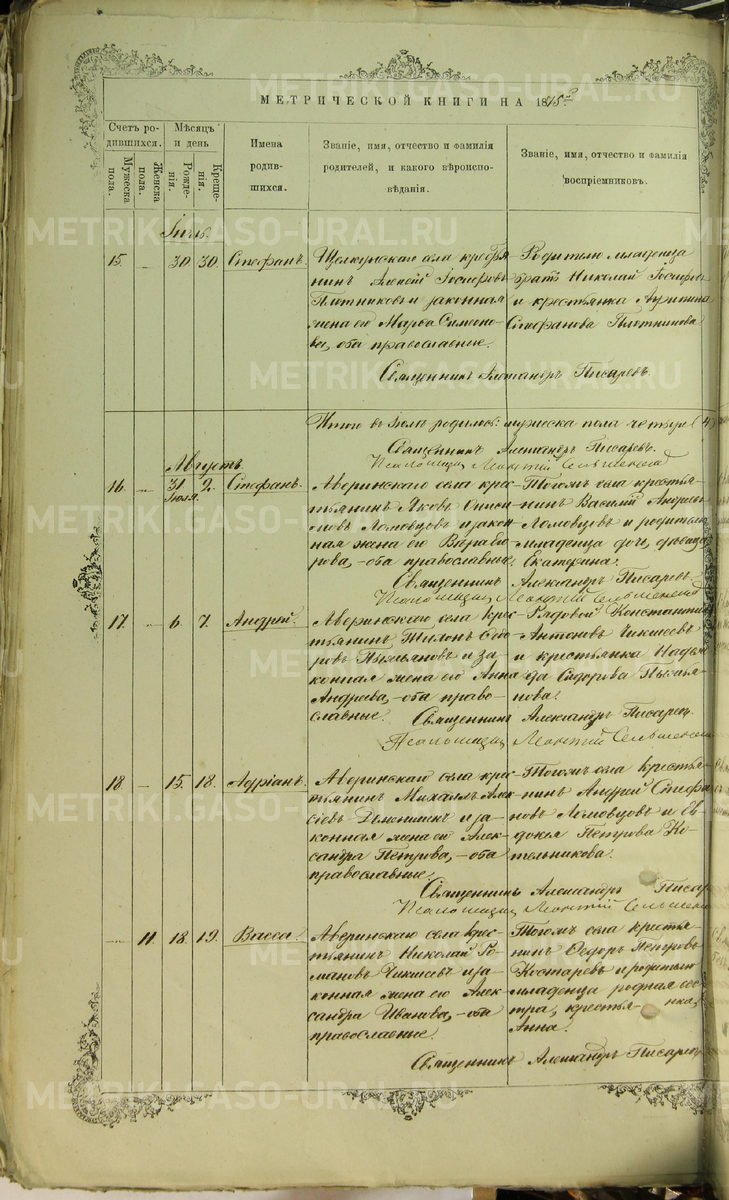 МЕТРИЧЕСКОЙ КНИГИ НА 18
Счетъ ро-
дившихся.
Мужеска
пола.
Женска
пола.
Мѣсяцъ
и день
Рожде-
нія.
Креще-
нія.
Имена
родив-
шихся.
Званіе, имя, отчество и фамилія
родителей, и какого вѣроиспо-
вѣданія.
Званіе, имя, отчество и фамилія
воспріемниковъ.
Іюль.
15. 30. 30. Стефанъ.
Щелкунскаго села крестья
нинъ Алексѣй Іосифовъ
Плотниковъ и законная
жена его Марѳа Симеоно
ва, оба православные.
Родители младенца
братъ Николай Іосифовъ
и крестьянка
Стефанова Плотникова
Священникъ Александръ Писаревъ.
Итого въ Іюлѣ родилось: мужеска пола четыре (4)
Священникъ Александръ Писаревъ.
Псаломщикъ
Августъ.
16. 31 Іюля. 2. Стефанъ.
Аверинскаго села крес-
тьянинъ Яковъ Ониси
мовъ Ломовцовъ и закон
ная жена его Вѣра
рова, – оба православные.
Тогожъ села крестья-
нинъ Василій Андреевъ
Ломовцовъ и родителя
младенца дочь, дѣвица
Екатерина.
Священникъ Александръ Писаревъ
Псаломщикъ
17. 6. 7. Андрей.
Аверинскаго села крес-
тьянинъ Тихонъ Сидо
ровъ Пьянковъ и за-
конная жена его Анна
Андреева, – оба право-
славные.
Рядовой Константинъ
Антоновъ Чикишевъ
и крестьянка Надеж
да Сидорова
нова.
Священникъ Александръ Писаревъ.
Псаломщикъ
18. 15. 18. Адріанъ.
Аверинскаго села крес-
тьянинъ Михаилъ Алек
сѣевъ и за-
конная жена его Алек-
сандра Петрова, – оба
православные.
Тогожъ села крестья-
нинъ Андрей Стефа
новъ Ломовцовъ и Ев
докія Петрова Ко-
тельникова.
Священникъ Александръ Писар
Псаломщикъ
11. 18. 19. Васса.
Аверинскаго села крес-
тьянинъ Николай Ро
мановъ Чикишевъ и за-
конная жена его Алек-
сандра Иванова, – оба
православные.
Тогожъ села крестья-
нинъ Ѳедоръ Петровъ
Костаревъ и родителя
младенца родная сес-
тра, крестьянка,
Анна.
Священникъ Александръ Писарев
METRIKI.GASO-URAL.RU